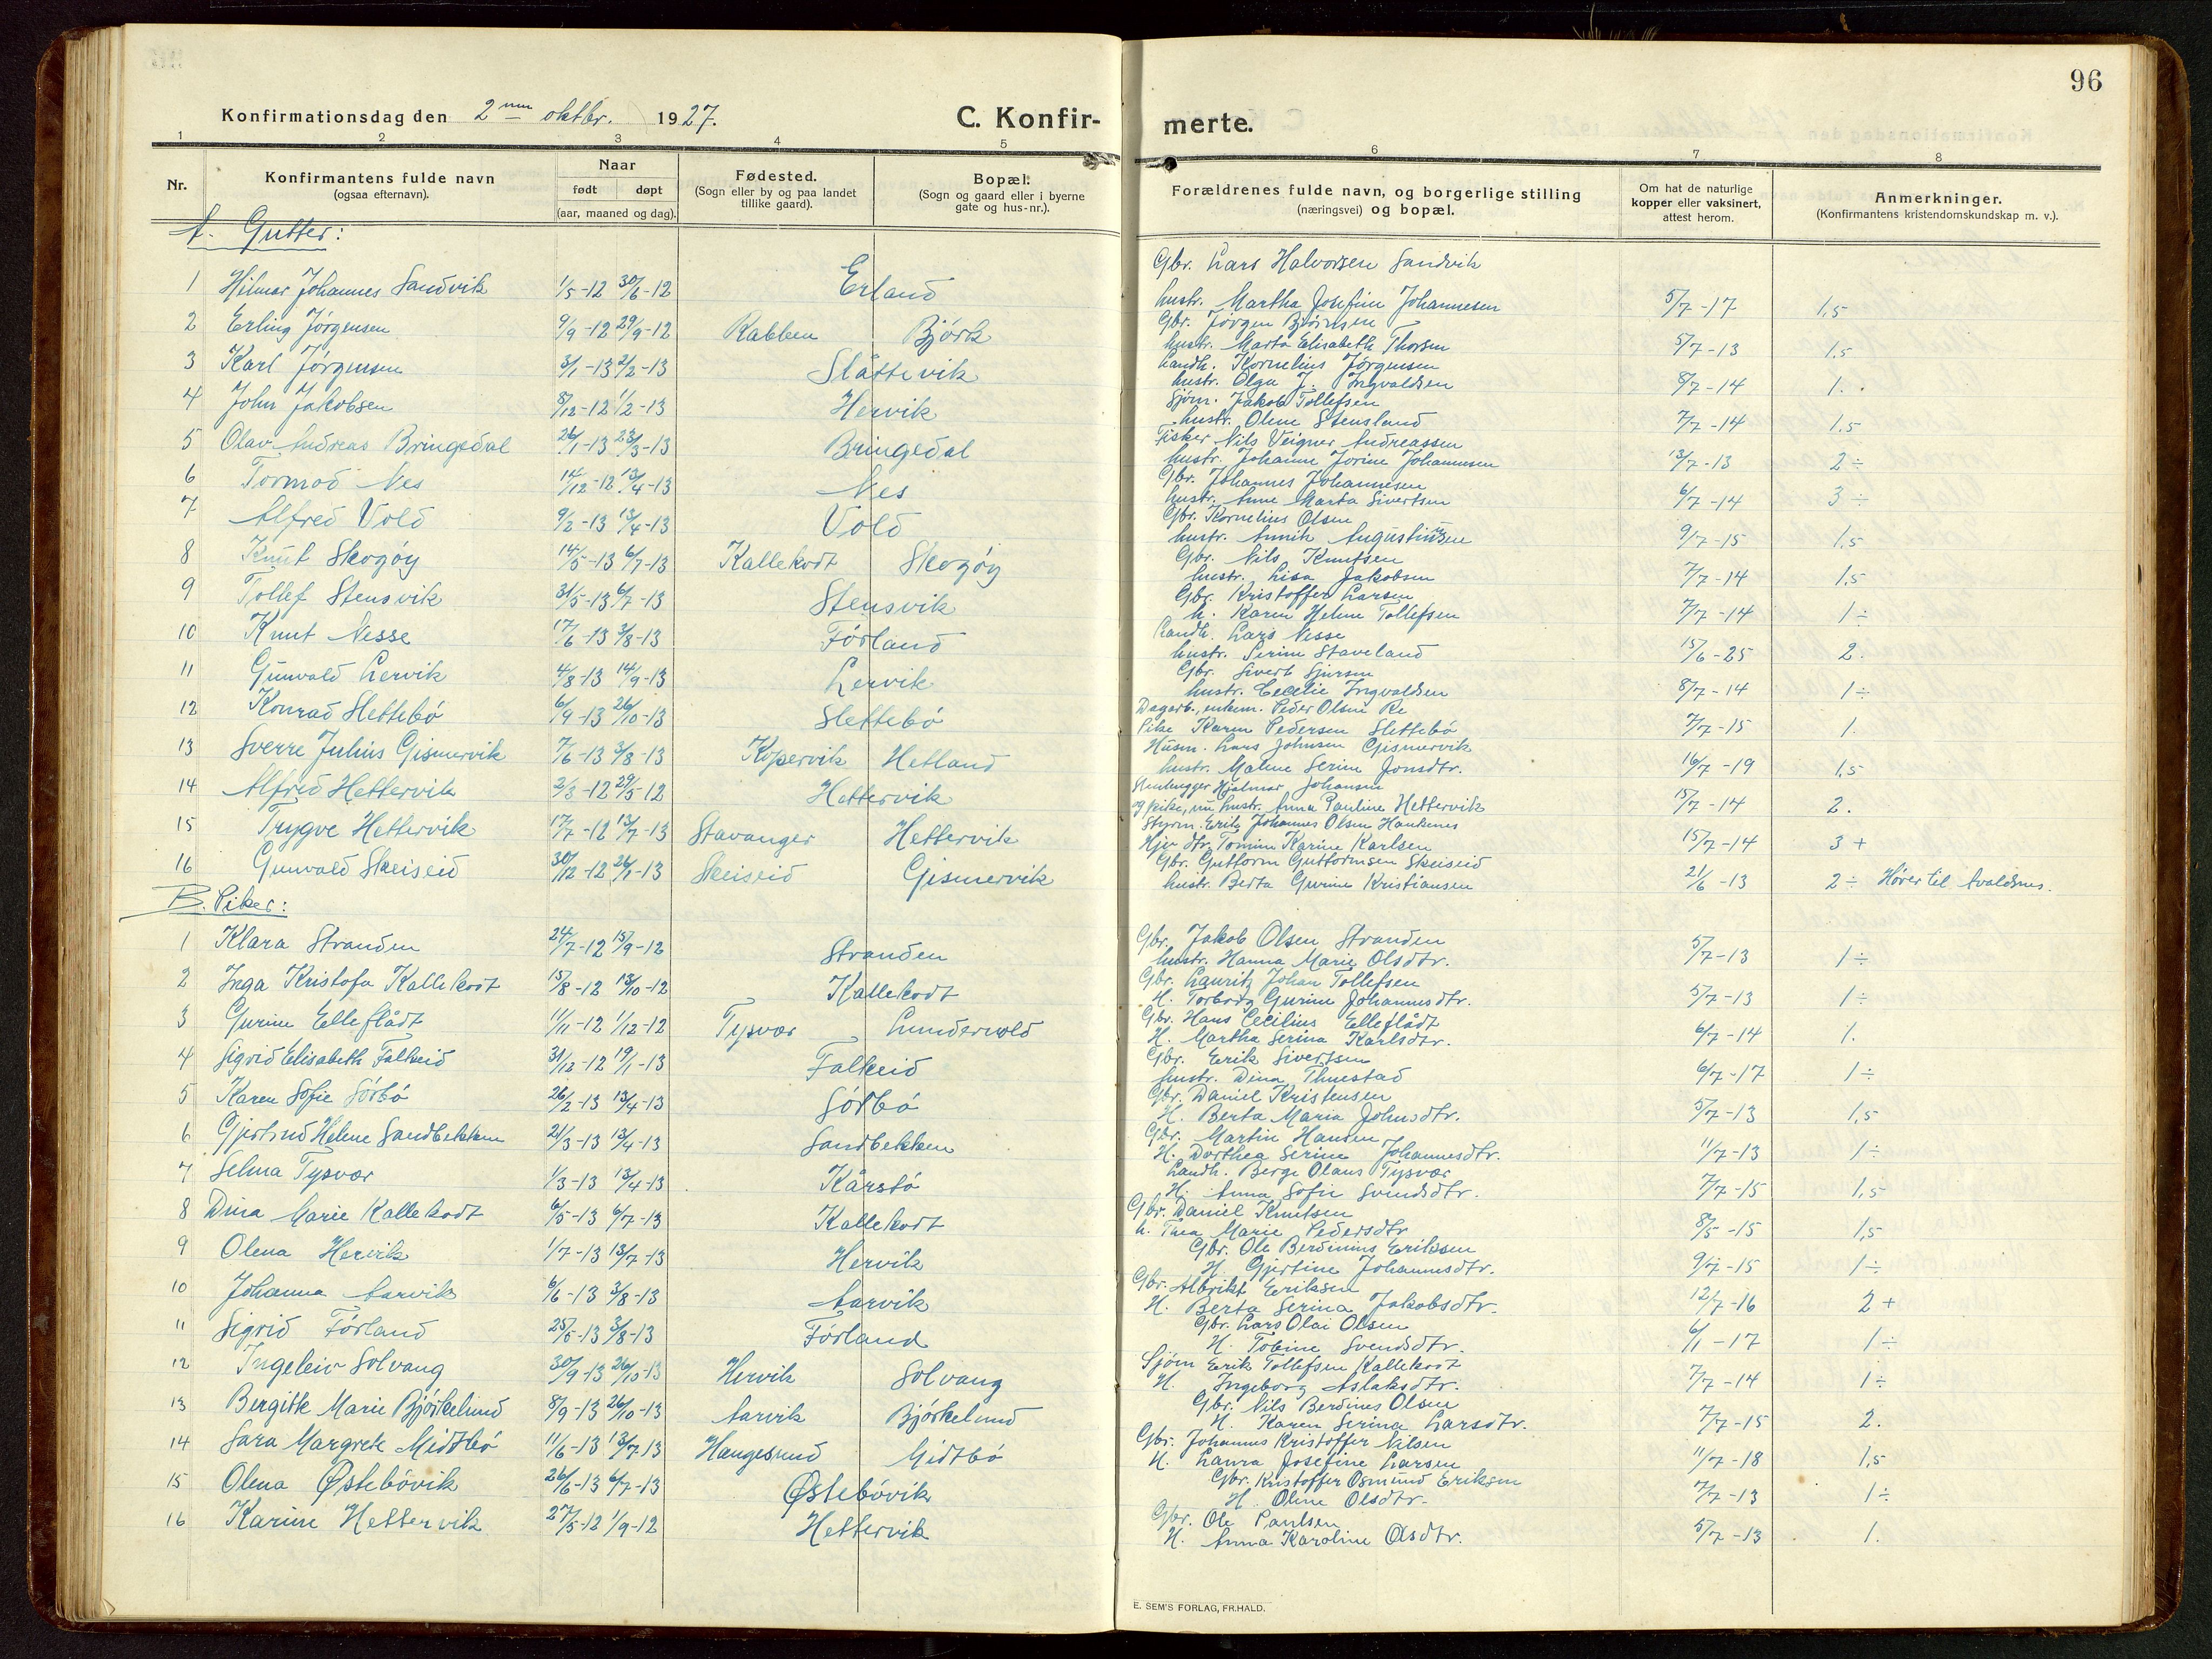 96
Konfirmationsdag den 2nen oktbr. 1927.
C. Konfirmerte.
1 2 3 4 5 6 7 8
Nr.
Konfirmantens fulde navn
(ogsaa efternavn).
Naar
født døpt
(aar, maaned og dag).
Fødested.
(Sogn eller by og paa landet
tillike gaard).
Bopæl.
(Sogn og gaard eller i byerne
gate og hus-nr.).
Forældrenes fulde navn, og borgerlige stilling
(næringsvei) og bopæl.
Om hat de naturlige
kopper eller vaksinert,
attest herom.
Anmerkninger.
(Konfirmantens kristendomskundskap m. v.).
A. Gutter:
1 Hilmar Johannes Sandvik 1/5-12 30/6-12 Erland Gbr. Lars Halvorsen Sandvik
hustr. Martha Josefine Johannesen 5/7-17 1,5
2 Erling Jørgensen 9/9-12 29/9-12 Rabben Bjørk Gbr. Jørgen Bjørnsen
hustr. Marta Elisabeth Thorsen 5/7-13 1,5
3 Karl Jørgensen 3/1-13 2/2-13 Slåttevik Landh. Kornelius Jørgensen
hustr. Olga J. Ingvaldsen 8/7-14 1.
4 John Jakobsen 8/12-12 1/2-13 Hervik Sjøm. Jakob Tollefsen
hustr. Oline Stensland 7/7-14 1.5
5 Olav Andreas Bringedal 26/1-13 23/3-13 Bringedal Fisker Nils Veigner Andreassen
hustr. Johanne Jorine Johannesen 13/7-13 2÷
6 Tormod Nes 14/12-12 13/4-13 Nes Gbr. Johannes Johannesen
hustr. Anne Marta Sivertsen 6/7-14 3÷
7 Alfred Vold 9/2-13 13/4-13 Vold Gbr. Kornelius Olsen
hustr. Annik Augustinsen 9/7-15 1,5
8 Knut Skogøy 14/5-13 6/7-13 Kallekodt Skogøy Gbr. Nils Knutsen
hustr. Lisa Jakobsen 7/7-14 1,5
9 Tollef Stensvik 31/5-13 6/7-13 Stensvik Gbr. Kristoffer Larsen
h. Karen Helene Tollefsen 7/7-14 1÷
10 Knut Nesse 17/6-13 3/8-13 Førland Landh. Lars Nesse
hustr. Serine Staveland 15/6-25 2.
11 Gunvald Lervik 4/8-13 14/9-13 Lervik Gbr. Sivert Sjursen
hustr. Cecelie Ingvaldsen 8/7-14 1÷
12 Konrad Slettebø 6/9-13 26/10-13 Slettebø Dagarb., enkem. Peder Olsen Re
Pike Karen Pedersen Slettebø 7/7-15 1.
13 Sverre Julius Gismervik 7/6-13 3/8-13 Kopervik Hetland Husm. Lars Johnsen Gismervik
hustr. Malene Serine Jonsdtr. 16/7-19 1,5
14 Alfred Hettervik 2/3-12 29/5-12 Hettervik Stenhugger Hjalmar Johansen
og pike, nu hustr. Anna Pauline Hettervik 15/7-14 2.
15 Trygve Hettervik 17/7-12 13/7-13 Stavanger Hettervik Styrm. Erik Johannes Olsen Haukenes
Hjv dtr Tomine Karine Karlsen 15/7-14 3+
16 Gunvald Skeiseid 30/12-12 26/1-13 Skeiseid Gismervik Gbr. Guttorm Guttormsen Skeiseid
hustr. Berta Gurine Kristiansen 21/6-13 2÷ Hører til Avaldsnes.
B. Piker:
1 Klara Stranden 24/7-12 15/9-12 Stranden Gbr. Jakob Olsen Stranden
hustr. Hanna Marie Olsdtr. 5/7-13 1÷
2 Inga Kristofa Kallekodt 15/8-12 13/10-12 Kallekodt Gbr. Lauritz Johan Tollefsen
H. Torborg Gurine Johannesdtr. 5/7-13 1÷
3 Gurine Elleflådt 11/11-12 1/12-12 Tysvær Lundervold Gbr. Hans Cecilius Elleflådt
H. Martha Serina Karlsdtr. 6/7-14 1.
4 Sigrid Elisabeth Falkeid 31/12-12 19/1-13 Falkeid Gbr. Erik Sivertsen
hustr. Dina Thuestad 6/7-17 1÷
5 Karen Sofie Sørbø 26/2-13 13/4-13 Sørbø Gbr. Daniel Kristensen
H. Berta Maria Johnsdtr. 5/7-13 1,5
6 Gjertrud Helene Sandbekken 21/3-13 13/4-13 Sandbekken Gbr. Martin Hansen
H. Dorthea Serine Johannesdtr. 11/7-13 1÷
7 Selma Tysvær 1/3-13 13/4-13 Kårstø Landh. Berge Olaus Tysvær
H. Anna Sofie Svendsdtr. 7/7-15 1,5
8 Dina Marie Kallekodt 6/5-13 6/7-13 Kallekodt Gbr. Daniel Knutsen
h. Thea Marie Pedersdtr 8/5-15 1,5
9 Olena Hervik 1/7-13 13/7-13 Hervik Gbr. Ole Berdinius Eriksen
H. Gjertine Johannesdtr. 9/7-15 1÷
10 Johanna Aarvik 6/6-13 3/8-13 Aarvik Gbr. Albrikt Eriksen
H. Berta Serina Jakobsdtr. 12/7-16 2+
11 Sigrid Førland 25/5-13 3/8-13 Førland Gbr. Lars Olai Olsen
H. Tobine Svendsdtr. 6/1-17 1÷
12 Ingeleiv Solvang 30/9-13 26/10-13 Hervik Solvang Sjøm Erik Tollefsen Kallekodt
H. Ingeborg Aslaksdtr. 7/7-14 1÷
13 Bergitte Marie Bjørkelund 8/9-13 26/10-13 Aarvik Bjørkelund Gbr. Nils Berdines Olsen
H. Karen Serina Larsdtr. 7/7-15 2.
14 Sara Margrete Midtbø 11/6-13 13/7-13 Haugesund Midtbø Gbr. Johannes Kristoffer Nilsen
H. Laura Josefine Larsen 11/7-18 1,5
15 Olena Østebøvik 26/6-13 6/7-13 Østebøvik Gbr. Kristoffer Osmund Eriksen
H. Oline Olsdtr. 7/7-13 1÷
16 Karine Hettervik 27/5-12 1/9-12 Hettervik Gbr. Ole Paulsen
H. Anna Karoline Olsdtr. 5/7-13 1.
E. SEM'S FORLAG, FR.HALD.